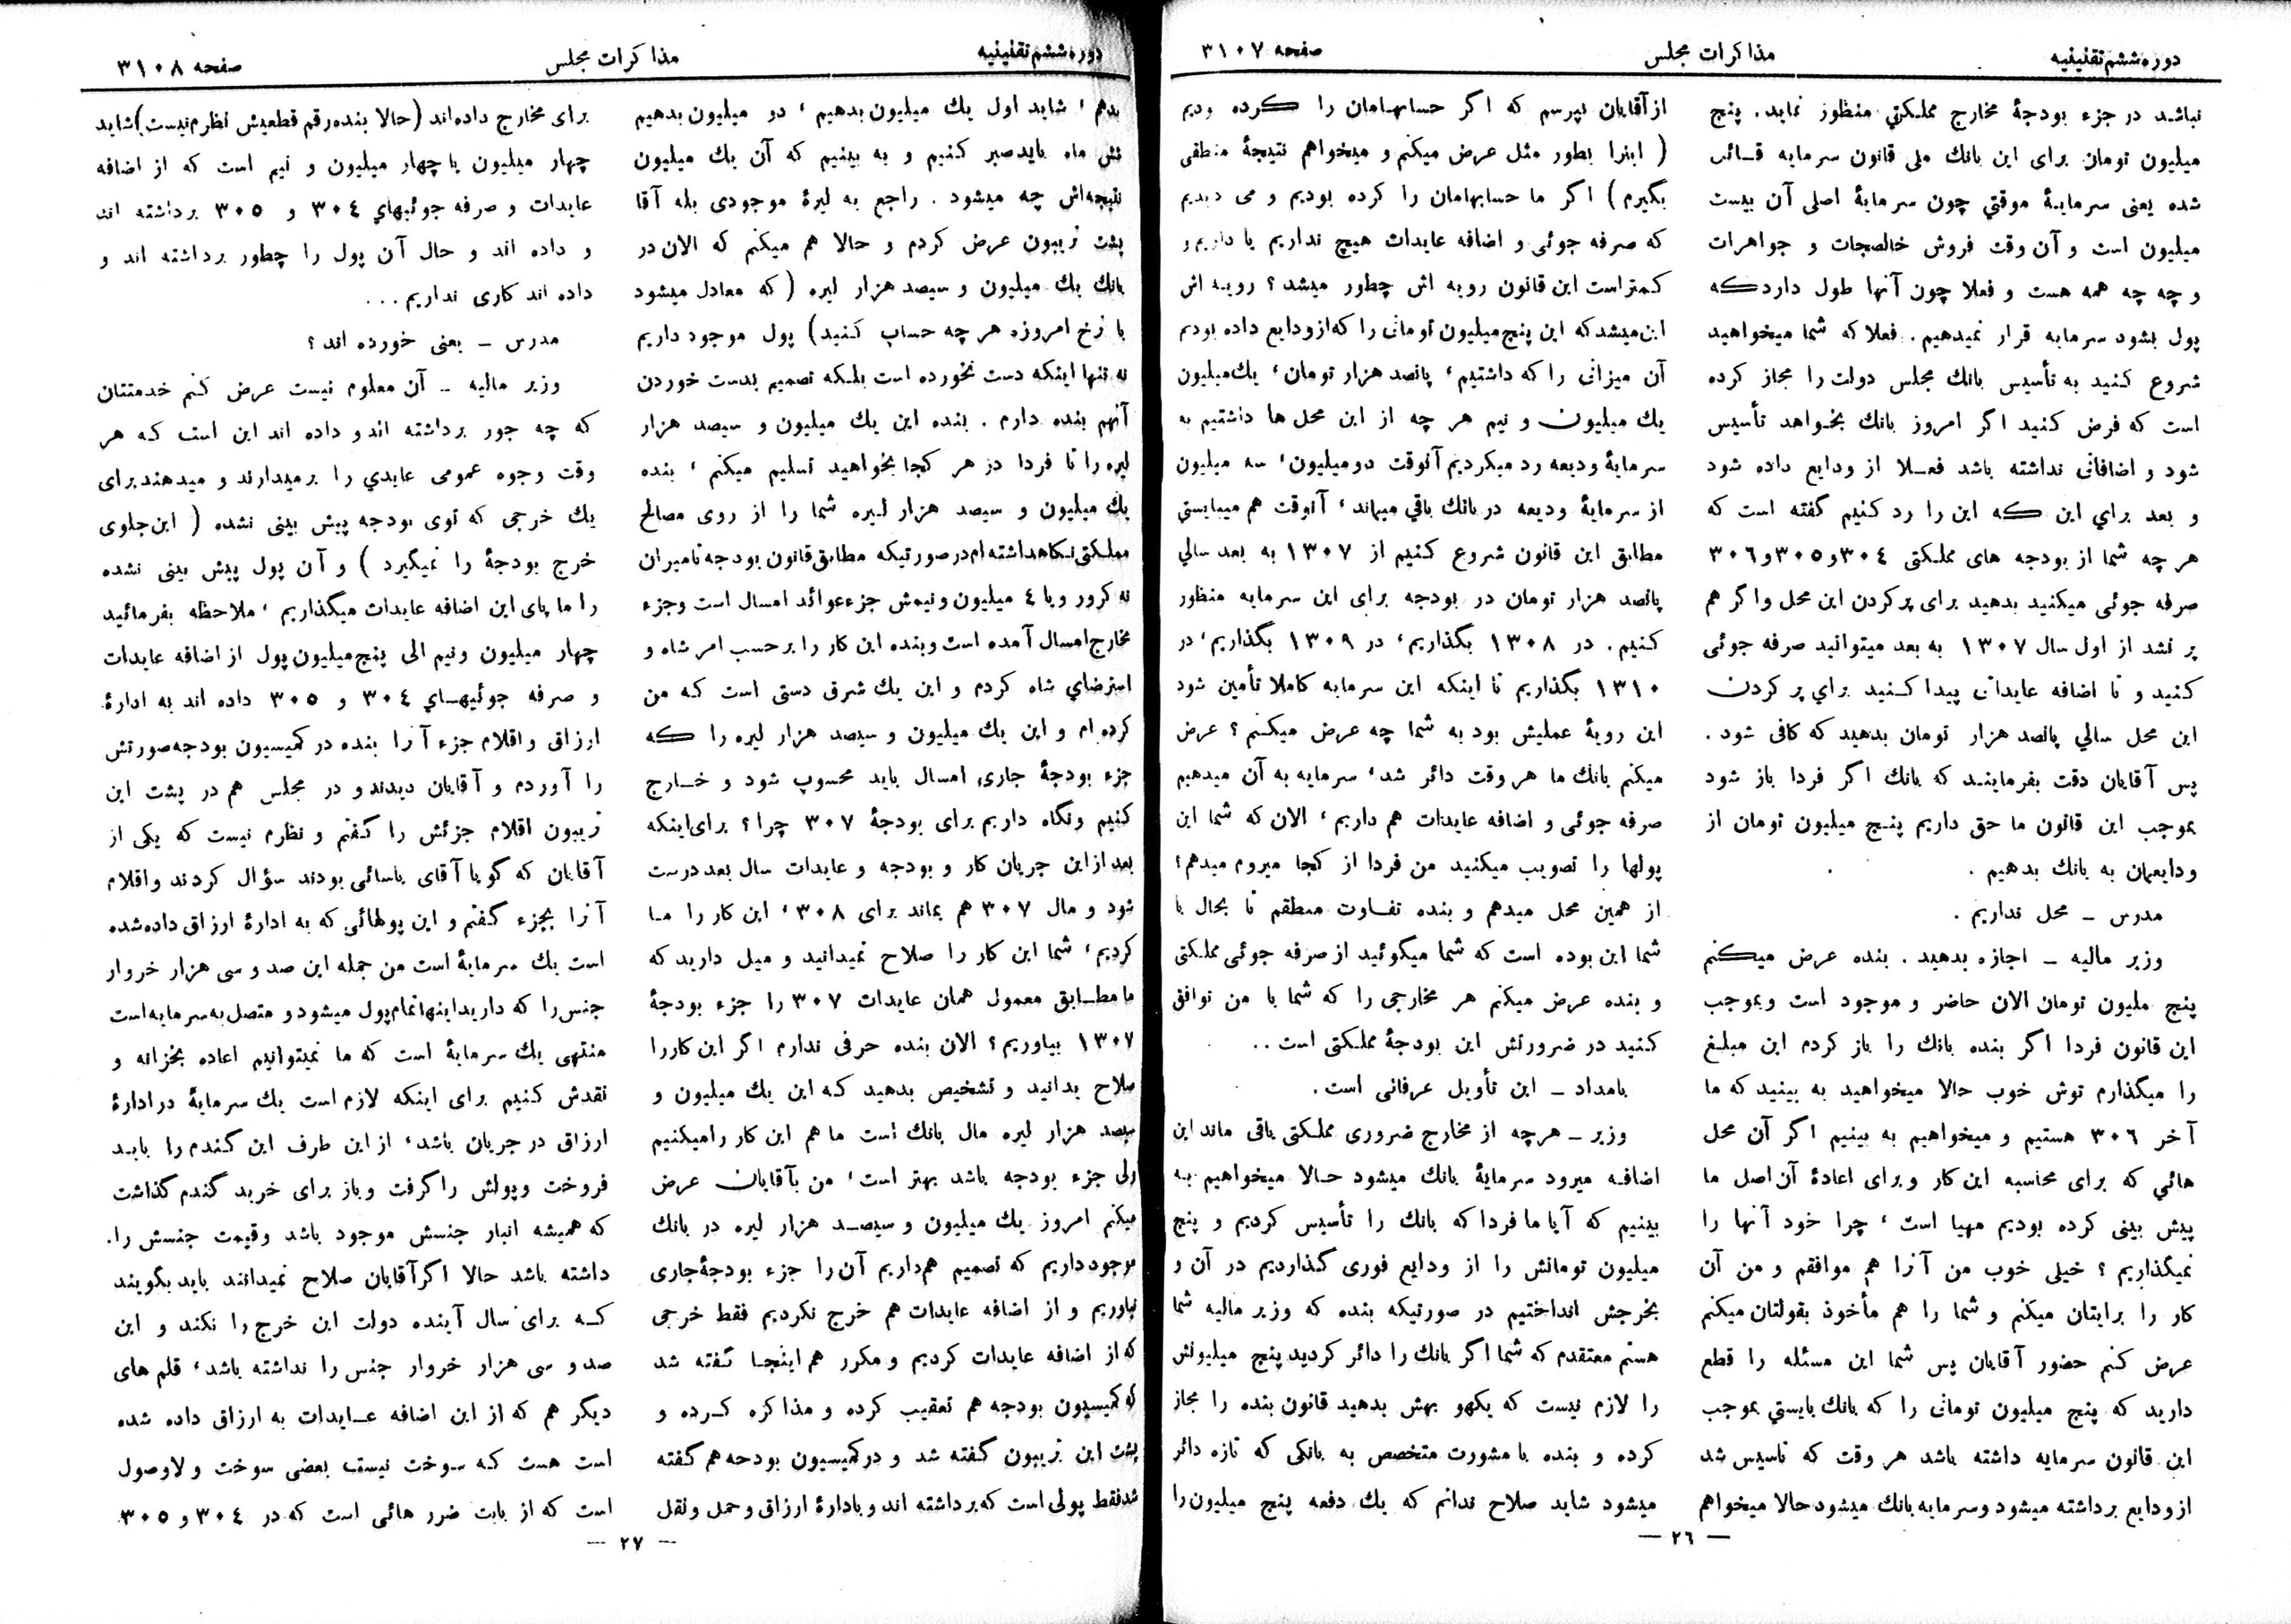 دوره ششم تقنینیه
مذاکرات مجلس
صفحه ۳۱۰۷
نباشد در جزء بودجهٔ مخارج مملکتی منظور نماید. پنج
میلیون تومان برای این بانک ملی قانون سرمایه قائل
شده یعنی سرمایهٔ موقتی چون سرمایهٔ اصلی آن بیست
میلیون است و آن وقت فروش خالصجات و جواهرات
و چه چه همه هست و فعلا چون آنها طول دارد که
پول بشود سرمایه قرار نمیدهیم. فعلا که شما میخواهید
شروع کنید به تأسیس بانک مجلس دولت را مجاز کرده
است که فرض کنید اگر امروز بانک بخواهد تأسیس
شود و اضافاتی نداشته باشد فعلا از ودایع داده شود
و بعد برای این که این را رد کنیم گفته است که
هر چه شما از بودجه های مملکتی ۳۰٤ و ۳۰٥ و ۳۰٦
صرفه جوئی میکنید بدهید برای پر کردن این محل و اگر هم
پر نشد از اول سال ۱۳۰۷ به بعد میتوانید صرفه جوئی
کنید و تا اضافه عایداتی پیدا کنید برای پر کردن
این محل سالی پانصد هزار تومان بدهید که کافی شود.
پس آقایان دقت بفرمایند که بانک اگر فردا باز شود
بموجب این قانون ما حق داریم پنج میلیون تومان از
ودایعمان به بانک بدهیم.
مدرس ـ محل نداریم.
وزیر مالیه ـ اجازه بدهید. بنده عرض میکنم
پنج ملیون تومان الان حاضر و موجود است و بموجب
این قانون فردا اگر بنده بانک را باز کردم این مبلغ
را میگذارم توش خوب حالا میخواهید به بینید که ما
آخر ۳۰٦ هستیم و میخواهیم به بینیم اگر آن محل
هائی که برای محاسبه این کار و برای اعادهٔ آن اصل ما
پیش بینی کرده بودیم مهیا است، چرا خود آنها را
نمیگذاریم؟ خیلی خوب من آنرا هم موافقم و من آن
کار را برایتان میکنم و شما را هم مأخوذ بقولتان میکنم
عرض کنم حضور آقایان پس شما این مسئله را قطع
دارید که پنج میلیون تومانی را که بانک بایستی بموجب
این قانون سرمایه داشته باشد هر وقت که تاسیس شد
از ودایع برداشته میشود و سرمایه بانک میشود حالا میخواهم
از آقایان بپرسم که اگر حسابهامان را کرده بودیم
( اینرا بطور مثل عرض میکنم و میخواهم نتیجهٔ منطقی
بگیرم ) اگر ما حسابهامان را کرده بودیم و می دیدیم
که صرفه جوئی و اضافه عایدات هیچ نداریم یا داریم و
کمتر است این قانون رویه اش چطور میشد؟ رویه اش
این میشد که این پنج میلیون تومانی را که از ودایع داده بودیم
آن میزانی را که داشتیم، پانصد هزار تومان، یک میلیون
یک میلیون و نیم هر چه از این محل ها داشتیم به
سرمایهٔ ودیعه رد میکردیم آنوقت دو میلیون، سه میلیون
از سرمایهٔ ودیعه در بانک باقی میماند، آنوقت هم میبایستی
مطابق این قانون شروع کنیم از ۱۳۰۷ به بعد سالی
پانصد هزار تومان در بودجه برای این سرمایه منظور
کنیم. در ۱۳۰۸ بگذاریم، در ۱۳۰۹ بگذاریم، در
۱۳۱۰ بگذاریم تا اینکه این سرمایه کاملا تأمین شود
این رویهٔ عملیش بود به شما چه عرض میکنم؟ عرض
میکنم بانک ما هر وقت دائر شد، سرمایه به آن میدهیم
صرفه جوئی و اضافه عایدات هم داریم، الان که شما این
پولها را تصویب میکنید من فردا از کجا میروم میدهم؟
از همین محل میدهم و بنده تفاوت منطقم تا بحال با
شما این بوده است که شما میگوئید از صرفه جوئی مملکتی
و بنده عرض میکنم هر مخارجی را که شما با من توافق
کنید در ضرورتش این بودجهٔ مملکتی است..
یامداد ـ این تأویل عرفانی است.
وزیر ـ هرچه از مخارج ضروری مملکتی باقی ماند این
اضافه میرود سرمایهٔ بانک میشود حالا میخواهیم به
بینیم که آیا ما فردا که بانک را تأسیس کردیم و پنج
میلیون تومانش را از ودایع فوری گذاردیم در آن و
بخرجش انداختیم در صورتیکه بنده که وزیر مالیه شما
هستم معتقدم که شما اگر بانک را دائر کردید پنج میلیونش
را لازم نیست که یکهو بهش بدهید قانون بنده را مجاز
کرده و بنده با مشورت متخصص به بانکی که تازه دائر
میشود شاید صلاح ندانم که یک دفعه پنج میلیون را
— ۲٦ —
دوره ششم تقنینیه
مذاکرات مجلس
صفحه ۳۱۰۸
بدهم، شاید اول یک میلیون بدهیم، دو میلیون بدهیم
شش ماه باید صبر کنیم و به بینیم که آن یک میلیون
نتیجه‌اش چه میشود. راجع به لیرهٔ موجودی بله آقا
پشت تریبون عرض کردم و حالا هم میکنم که الان در
بانک یک میلیون و سیصد هزار لیره ( که معادل میشود
با نرخ امروزه هر چه حساب کنید ) پول موجود داریم
نه تنها اینکه دست نخورده است بلکه تصمیم بدست خوردن
آنهم بنده دارم. بنده این یک میلیون و سیصد هزار
لیره را تا فردا در هر کجا بخواهید تسلیم میکنم، بنده
یک میلیون و سیصد هزار لیره شما را از روی مصالح
مملکتی نگاهداشته‌ام در صورتیکه مطابق قانون بودجه تا میزان
نه کرور و یا ٤ میلیون و نیمش جزء عوائد امسال است و جزء
مخارج امسال آمده است و بنده این کار را بر حسب امر شاه و
استرضای شاه کردم و این یک شرق دستی است که من
کرده‌ام و این یک میلیون و سیصد هزار لیره را که
جزء بودجهٔ جاری امسال باید محسوب شود و خارج
کنیم و نگاه داریم برای بودجهٔ ۳۰۷ چرا؟ برای اینکه
بعد از این جریان کار و بودجه و عایدات سال بعد درست
شود و مال ۳۰۷ هم بماند برای ۳۰۸، این کار را ما
کردیم، شما این کار را صلاح نمیدانید و میل دارید که
ما مطابق معمول همان عایدات ۳۰۷ را جزء بودجهٔ
۱۳۰۷ بیاوریم؟ الان بنده حرفی ندارم اگر این کار را
صلاح بدانید و تشخیص بدهید که این یک میلیون و
سیصد هزار لیره مال بانک است ما هم این کار را میکنیم
ولی جزء بودجه باشد بهتر است، من بآقایان عرض
میکنم امروز یک میلیون و سیصد هزار لیره در بانک
موجود داریم که تصمیم هم داریم آن را جزء بودجهٔ جاری
نیاوریم و از اضافه عایدات هم خرج نکردیم فقط خرجی
که از اضافه عایدات کردیم و مکرر هم اینجا گفته شد
که کمیسیون بودجه هم تعقیب کرده و مذاکره کرده و
پشت این تریبون گفته شد و در کمیسیون بودجه هم گفته
شد فقط پولی است که برداشته اند و بادارهٔ ارزاق و حمل و نقل
برای مخارج داده‌اند ( حالا بنده رقم قطعیش نظرم نیست ) شاید
چهار میلیون یا چهار میلیون و نیم است که از اضافه
عایدات و صرفه جوئیهای ۳۰٤ و ۳۰٥ برداشته اند
و داده اند و حال آن پول را چطور برداشته اند و
داده اند کاری نداریم...
مدرس ـ یعنی خورده اند؟
وزیر مالیه ـ آن معلوم نیست عرض کنم خدمتتان
که چه جور برداشته اند و داده اند این است که هر
وقت وجوه عمومی عایدی را بر میدارند و میدهند برای
یک خرجی که توی بودجه پیش بینی نشده ( این جلوی
خرج بودجهٔ را نمیگیرد ) و آن پول پیش بینی نشده
را ما پای این اضافه عایدات میگذاریم، ملاحظه بفرمائید
چهار میلیون و نیم الی پنج میلیون پول از اضافه عایدات
و صرفه جوئیهای ۳۰٤ و ۳۰٥ داده اند به ادارهٔ
ارزاق و اقلام جزء آنرا بنده در کمیسیون بودجه صورتش
را آوردم و آقایان دیدند و در مجلس هم در پشت این
تریبون اقلام جزئش را گفتم و نظرم نیست که یکی از
آقایان که گویا آقای یاسائی بودند سؤال کردند و اقلام
آنرا بجزء گفتم و این پولهائی که به ادارهٔ ارزاق داده شده
است یک سرمایهٔ است من جمله این صد و سی هزار خروار
جنس را که دارید اینها تمام پول میشود و متصل به سرمایه است
منتهی یک سرمایهٔ است که ما نمیتوانیم اعاده بخزانه و
نقدش کنیم برای اینکه لازم است یک سرمایهٔ در ادارهٔ
ارزاق در جریان باشد، از این طرف این گندم را باید
فروخت و پولش را گرفت و باز برای خرید گندم گذاشت
که همیشه انبار جنسش موجود باشد و قیمت جنسش را
داشته باشد حالا اگر آقایان صلاح نمیدانند باید بگویند
که برای سال آینده دولت این خرج را نکند و این
صد و سی هزار خروار جنس را نداشته باشد، قلم های
دیگر هم که از این اضافه عایدات به ارزاق داده شده
است هست که سوخت نیست بعضی سوخت و لاوصول
است که از بابت ضرر هائی است که در ۳۰٤ و ۳۰٥
— ۲۷ —